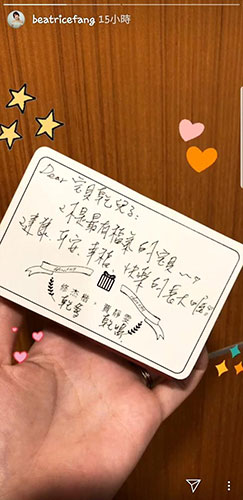 beatricefang 15小時
Dear 寶貝乾兒子:
你是最有福氣的寶貝~~
健康、平安、幸福、快樂的長大喔♡
修杰楷、賈靜雯
乾爹 乾媽